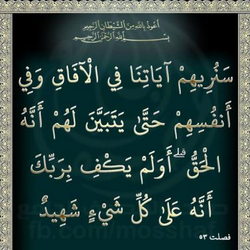 أعوذ بالله من الشيطان الرجيم
بسم الله الرحمن الرحيم
سَنُرِيهِمْ آيَاتِنَا فِي الْآفَاقِ وَفِي
أَنفُسِهِمْ حَتَّىٰ يَتَبَيَّنَ لَهُمْ أَنَّهُ
الْحَقُّ ۗ أَوَلَمْ يَكْفِ بِرَبِّكَ
أَنَّهُ عَلَىٰ كُلِّ شَيْءٍ شَهِيدٌ
فصلت ٥٣